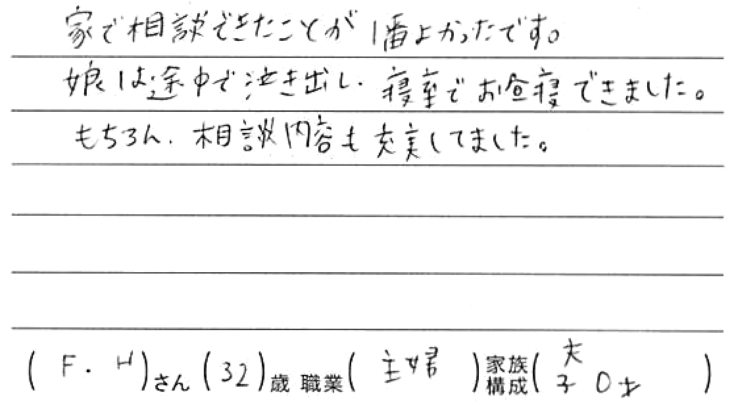 家で相談できたことが1番よかったです。
娘は途中で泣き出し、寝室でお昼寝できました。
もちろん、相談内容も充実してました。
(F.H)さん(32)歳 職業(主婦)家族構成(夫 子0才)